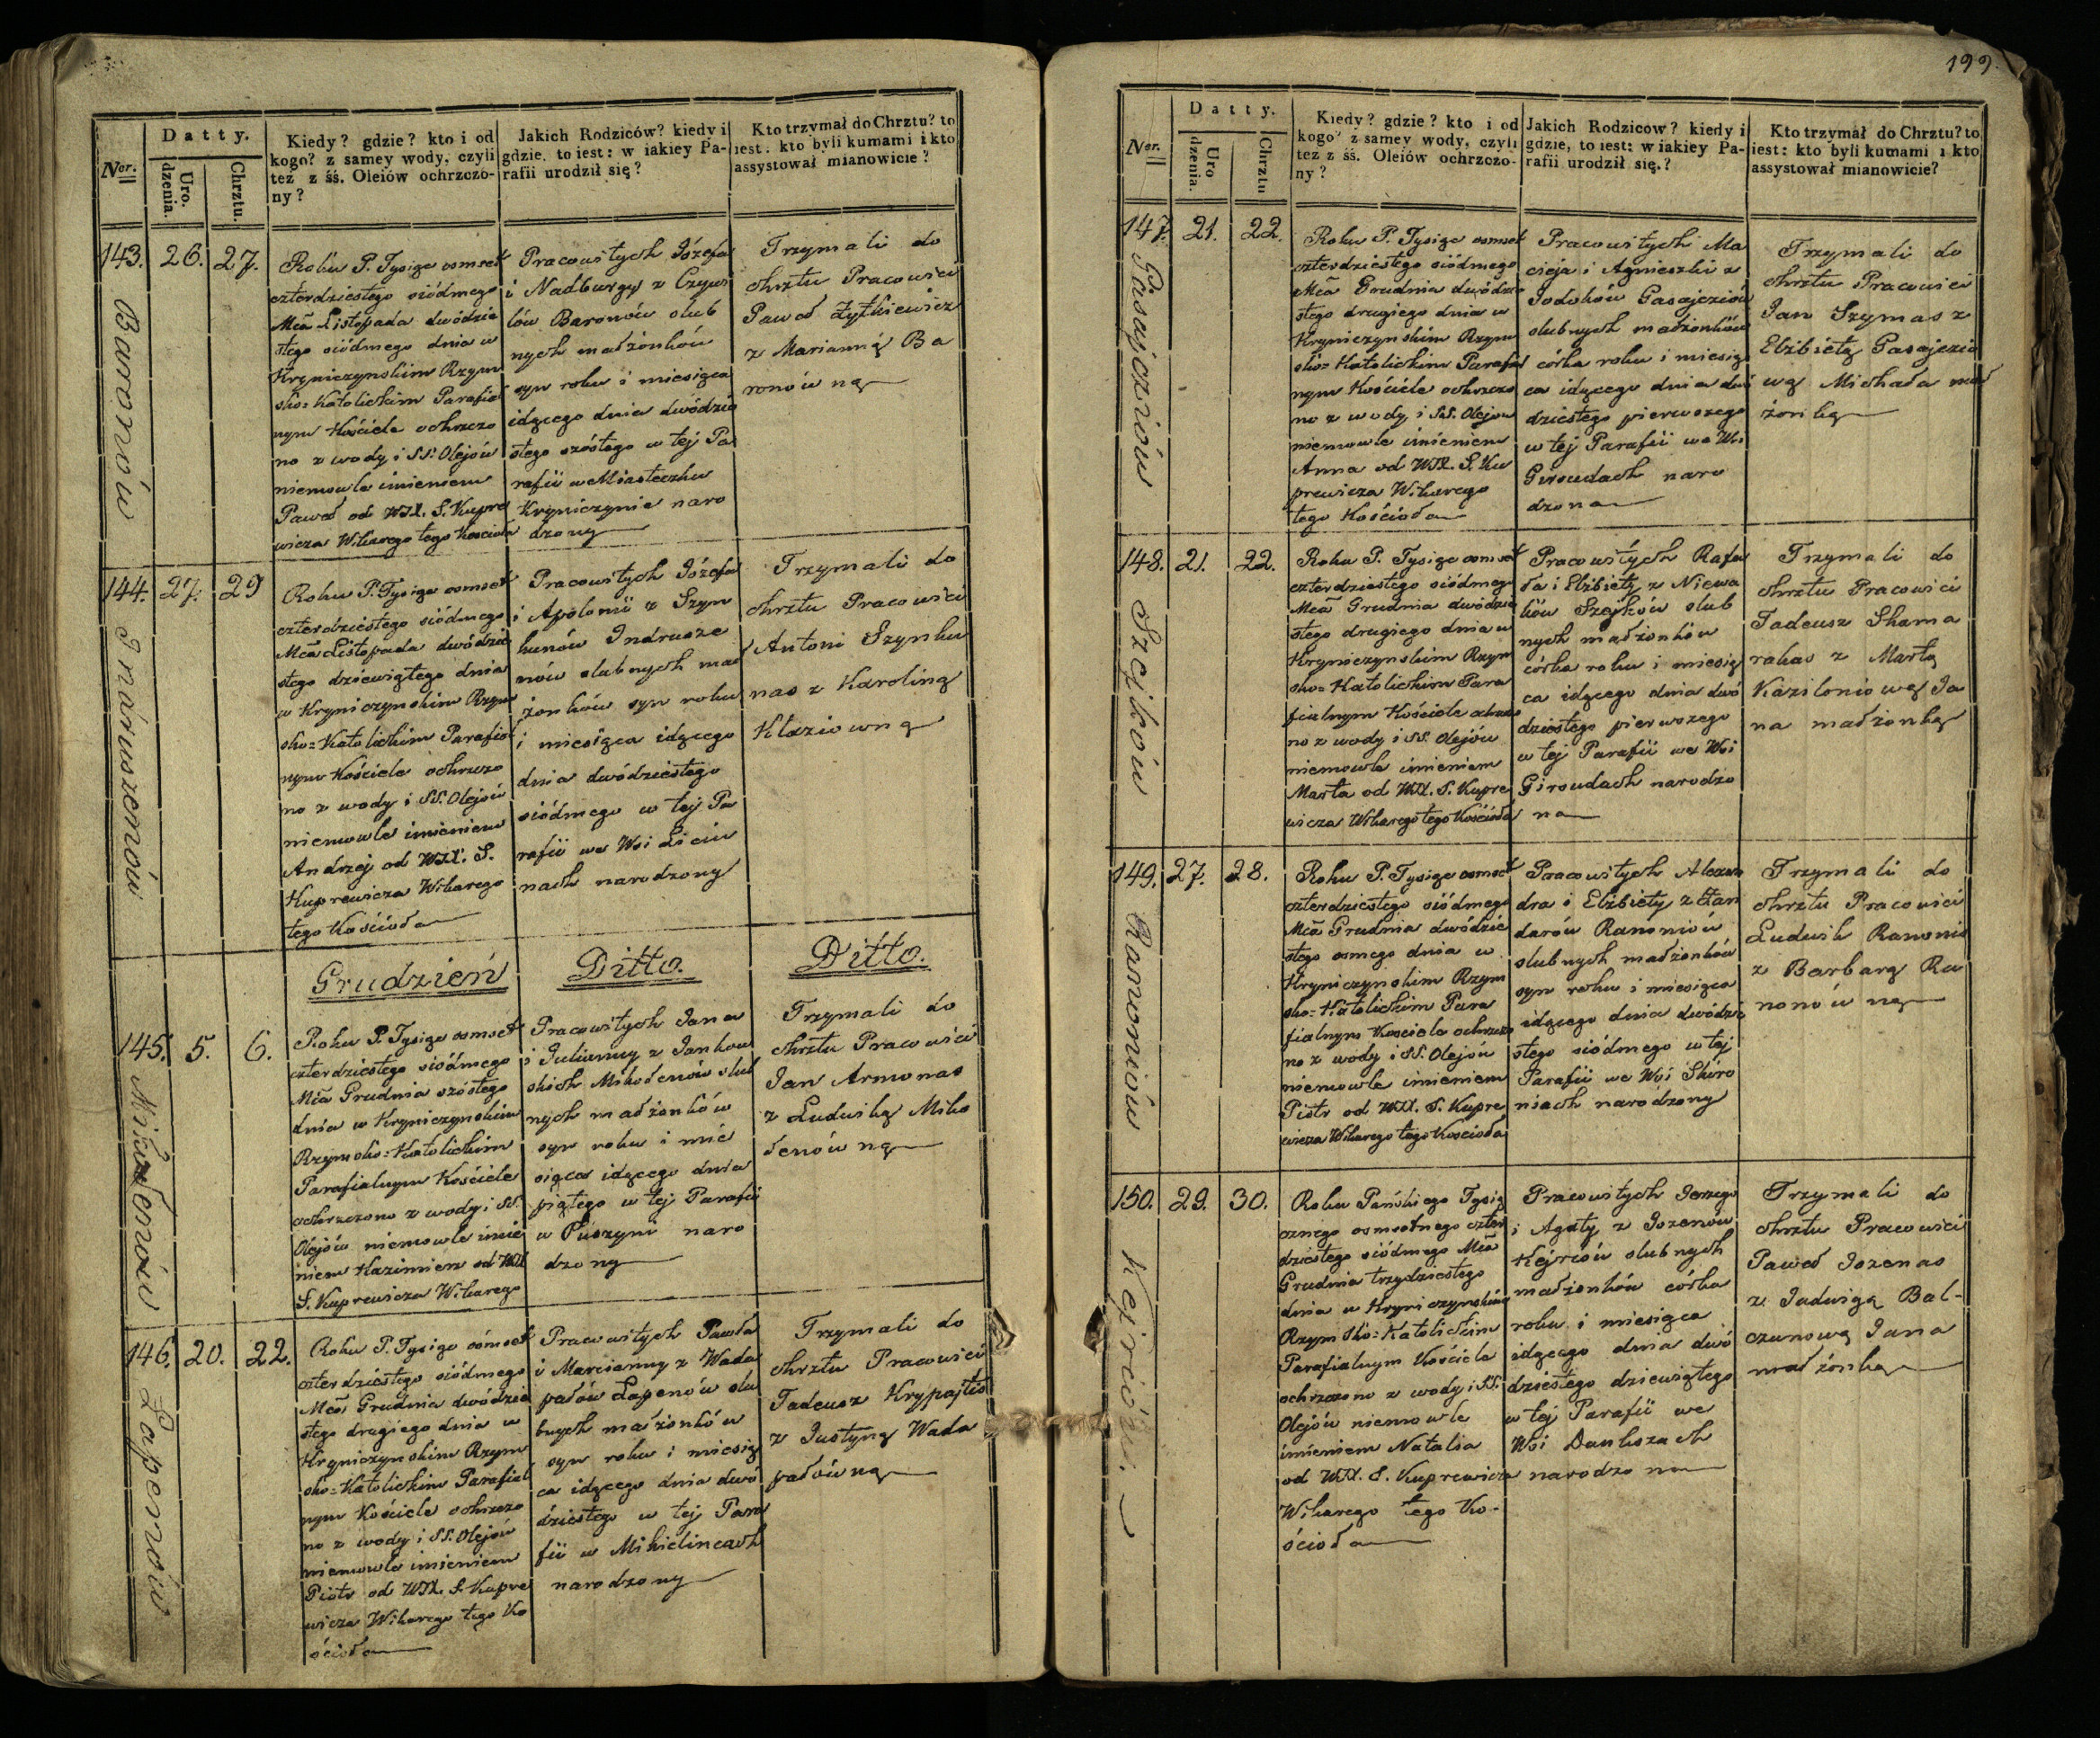 199.
Ner.
Datty.
Uro.
dzenia.
Chrztu.
Kiedy? gdzie? kto i od
kogo? z samey wody, czyli
też z śś. Oleiów ochrzczo-
ny?
Jakich Rodziców? kiedy i
gdzie, to iest: w iakiey Pa-
rafii urodził się?
Kto trzymał do Chrztu? to
iest: kto byli kumami i kto
assystował mianowicie?
143.
26.
27.
Baronów
Roku P. Tysiąc osmset
czterdziestego siódmego
Mca Listopada dwódzie
stego siódmego dnia w
Kryniczynskim Rzym
sko=Katolickim Parafial
nym Kościele ochrzczo
no z wody i SS. Olejów
niemowle imieniem
Paweł od WJX. S. Kupre
wicza Wikarego tego Kościoła
Pracowitych Józefa
i Nadburgy z
Baronów slub
nych małżonków
syn roku i miesiąca
idącego dnia dwódzie
stego szóstego w tej Pa
rafii w Miasteczku
Kryniczynie naro
dzony
Trzymali do
chrztu Pracowici
Paweł Żytkiewicz
z Marianną Ba
ronówną
144.
27.
29
Indruszenów
Roku P. Tysiąc osmset
czterdziestego siódmego
Mca Listopada dwódzie
stego dziewiątego dnia
w Kryniczynskim Rzym
sko=Katolickim Parafial
nym Kościele ochrzczo
no z wody i SS. Olejów
niemowle imieniem
Andrzej od WJX. S.
Kuprewicza Wikarego
tego Kościoła
Pracowitych Józefa
i Apolonii z Szyn
kunów Indrusze
nów slubnych mał
żonków syn roku
i miesiąca idącego
dnia dwódziestego
siódmego w tej Pa
rafii we Wsi Liciu
nach narodzony
Trzymali do
chrztu Pracowici
Antoni Szynku
nas z Karoliną
Kłaziowną
Grudzień
Ditto.
Ditto.
145.
5.
6.
Mikołenów
Roku P. Tysiąc osmset
czterdziestego siódmego
Mca Grudnia szóstego
dnia w Kryniczynskim
Rzymsko=Katolickim
Parafialnym Kościele
ochrzczono z wody i SS.
Olejów niemowle imie
niem Kazimierz od WJX
S. Kuprewicza Wikarego
Pracowitych Jana
i Julianny z Jankow
skich Mikołenów slub
nych małżonków
syn roku i mie
siąca idącego dnia
piątego w tej Parafii
w Puszyni naro
dzony
Trzymali do
chrztu Pracowici
Jan Armonas
z Ludwiką Miko
łenówną
146.
20.
22.
Lapenów
Roku P. Tysiąc osmset
czterdziestego siódmego
Mca Grudnia dwódzie
stego drugiego dnia w
Kryniczynskim Rzym
sko=Katolickim Parafial
nym Kościele ochrzczo
no z wody i SS. Olejów
niemowle imieniem
Piotr od WJX. S. Kupre
wicza Wikarego tego Ko
ścioła
Pracowitych Pawła
i Marcianny z Wada
pałów Lapenów slu
bnych małżonków
syn roku i miesią
ca idącego dnia dwó
dziestego w tej Para
fii w Mikielincach
narodzony
Trzymali do
chrztu Pracowici
Tadeusz Krypajtis
z Justyną Wada
pałówną
Ner.
Datty.
Uro
dzenia.
Chrztu
Kiedy? gdzie? kto i od
kogo? z samey wody, czyli
też z śś. Oleiów ochrzczo-
ny?
Jakich Rodziców? kiedy i
gdzie, to iest: w iakiey Pa-
rafii urodził się.?
Kto trzymał do Chrztu? to
iest: kto byli kumami i kto
assystował mianowicie?
147.
21.
22.
Pasajcziów
Roku P. Tysiąc osmset
czterdziestego siódmego
Mca Grudnia dwódzie
stego drugiego dnia w
Kryniczynskim Rzym
sko=Katolickim Parafial
nym Kościele ochrzczo
no z wody i SS. Olejów
niemowle imieniem
Anna od WJX. S. Ku
prewicza Wikarego
tego Kościoła
Pracowitych Ma
cieja i Agnieszki z
Jodoków Pasajcziów
slubnych małżonków
córka roku i miesią
ca idącego dnia dwó
dziestego pierwszego
w tej Parafii we Wsi
Girsudach naro
dzona
Trzymali do
chrztu Pracowici
Jan Szymas z
Elżbietą Pasajczio
wą Michała mał
żonką
148.
21.
22.
Szejków
Roku P. Tysiąc osmset
czterdziestego siódmego
Mca Grudnia dwódzie
stego drugiego dnia w
Kryniczynskim Rzym
sko=Katolickim Para
fialnym Kościele ochrzczo
no z wody i SS. Olejów
niemowle imieniem
Marta od WJX. S. Kupre
wicza Wikarego tego Kościoła
Pracowitych Rafa
ła i Elżbiety z Niewa
ków Szejków slub
nych małżonków
córka roku i miesią
ca idącego dnia dwó
dziestego pierwszego
w tej Parafii we Wsi
Girsudach narodzo
na
Trzymali do
chrztu Pracowici
Tadeusz Skama
rakas z Martą
Kaziloniową Ja
na małżonką
149.
27.
28.
Ranoniów
Roku P. Tysiąc osmset
czterdziestego siódmego
Mca Grudnia dwódzie
stego osmego dnia w
Kryniczynskim Rzym
sko=Katolickim Para
fialnym Kościele ochrzczo
no z wody i SS. Olejów
niemowle imieniem
Piotr od WJX. S. Kupre
wicza Wikarego tego Kościoła
Pracowitych Alexan
dra i Elżbiety z
darów Ranoniów
slubnych małżonków
syn roku i miesiąca
idącego dnia dwódzie
stego siódmego w tej
Parafii we Wsi Skiro
niach narodzony
Trzymali do
chrztu Pracowici
Ludwik Ranonis
z Barbarą Ra
nonówną
150.
29.
30.
Kejrców
Roku Pańskiego Tysią
cznego osmsetnego czter
dziestego siódmego Mca
Grudnia trzydziestego
dnia w Kryniczynskim
Rzymsko=Katolickim
Parafialnym Kościele
ochrzczono z wody i SS.
Olejów niemowle
imieniem Natalia
od WJX. S. Kuprewicza
Wikarego tego Ko-
ścioła
Pracowitych Jerzego
i Agaty z Jozenów
Kejrców slubnych
małżonków córka
roku i miesiąca
idącego dnia dwó
dziestego dziewiątego
w tej Parafii we
Wsi Dankszach
narodzona
Trzymali do
chrztu Pracowici
Paweł Jozenas
z Jadwigą Bal-
czunową Jana
małżonką